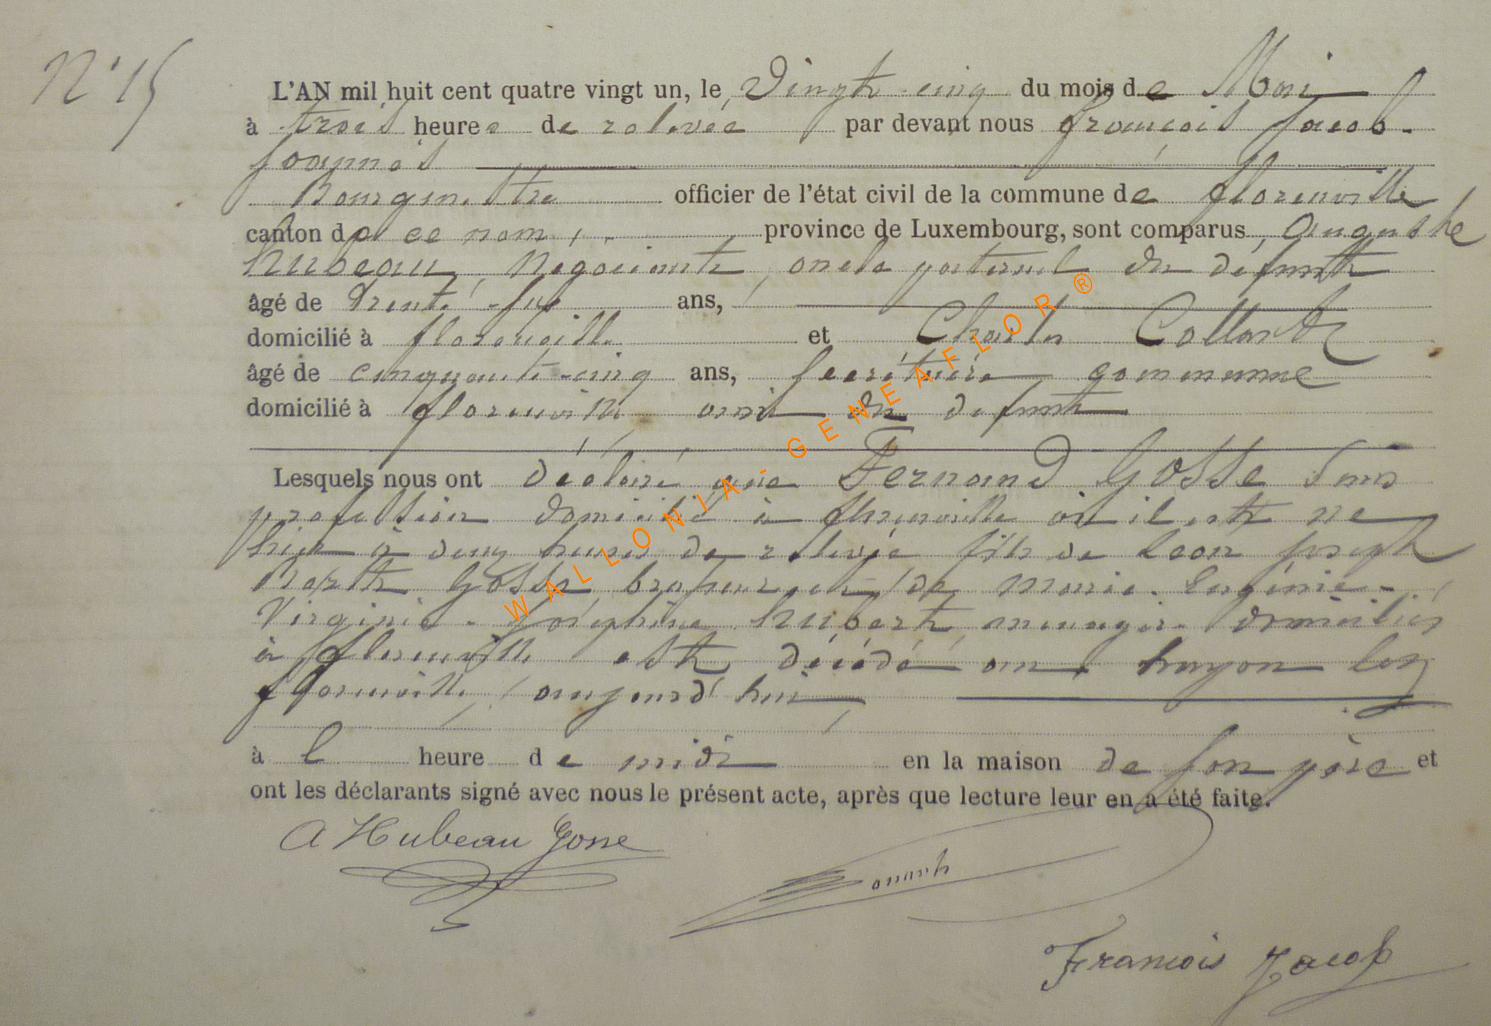 N° 15
L'AN mil huit cent quatre vingt un, le Vingt-cinq du mois de Mai
à trois heures de relevée par devant nous françois Jacob-
Joannes
Bourgmestre officier de l'état civil de la commune de florenville
canton de ce nom, province de Luxembourg, sont comparus Auguste
Hubeau, Négociant, oncle paternel du défunt
âgé de Trente-six ans,
domicilié à florenville et Charles Collard
âgé de cinquante-cinq ans, secrétaire communal
domicilié à florenville, ami du défunt
Lesquels nous ont déclaré que Fernand Gosse Sans
profession domicilié à florenville où il est né
hier à deux heures de relevée fils de Léon Joseph
Gosse brasseur et de Marie-Eugénie-
Virginie-Joséphine Hubert ménagère domiciliés
à florenville est décédé lez
florenville, aujourd'hui
à l heure de midi en la maison de son père et
ont les déclarants signé avec nous le présent acte, après que lecture leur en a été faite.
A Hubeau Gosse
François Jacob
WALLONIA-GENEAFLOR ®